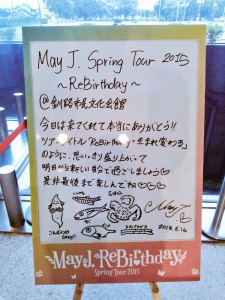 May J. Spring Tour 2015
~ReBirthday~
@釧路市民文化会館
今日は来てくれて本当にありがとう!!
ツアータイトル"ReBirthday=生まれ変わる"
のように、思いっきり盛り上がって
明日から新しい自分で過ごしましょう♡
是非最後まで楽しんでね♡♡
May J.
2015.6.14
May J. ReBirthday
Spring Tour 2015